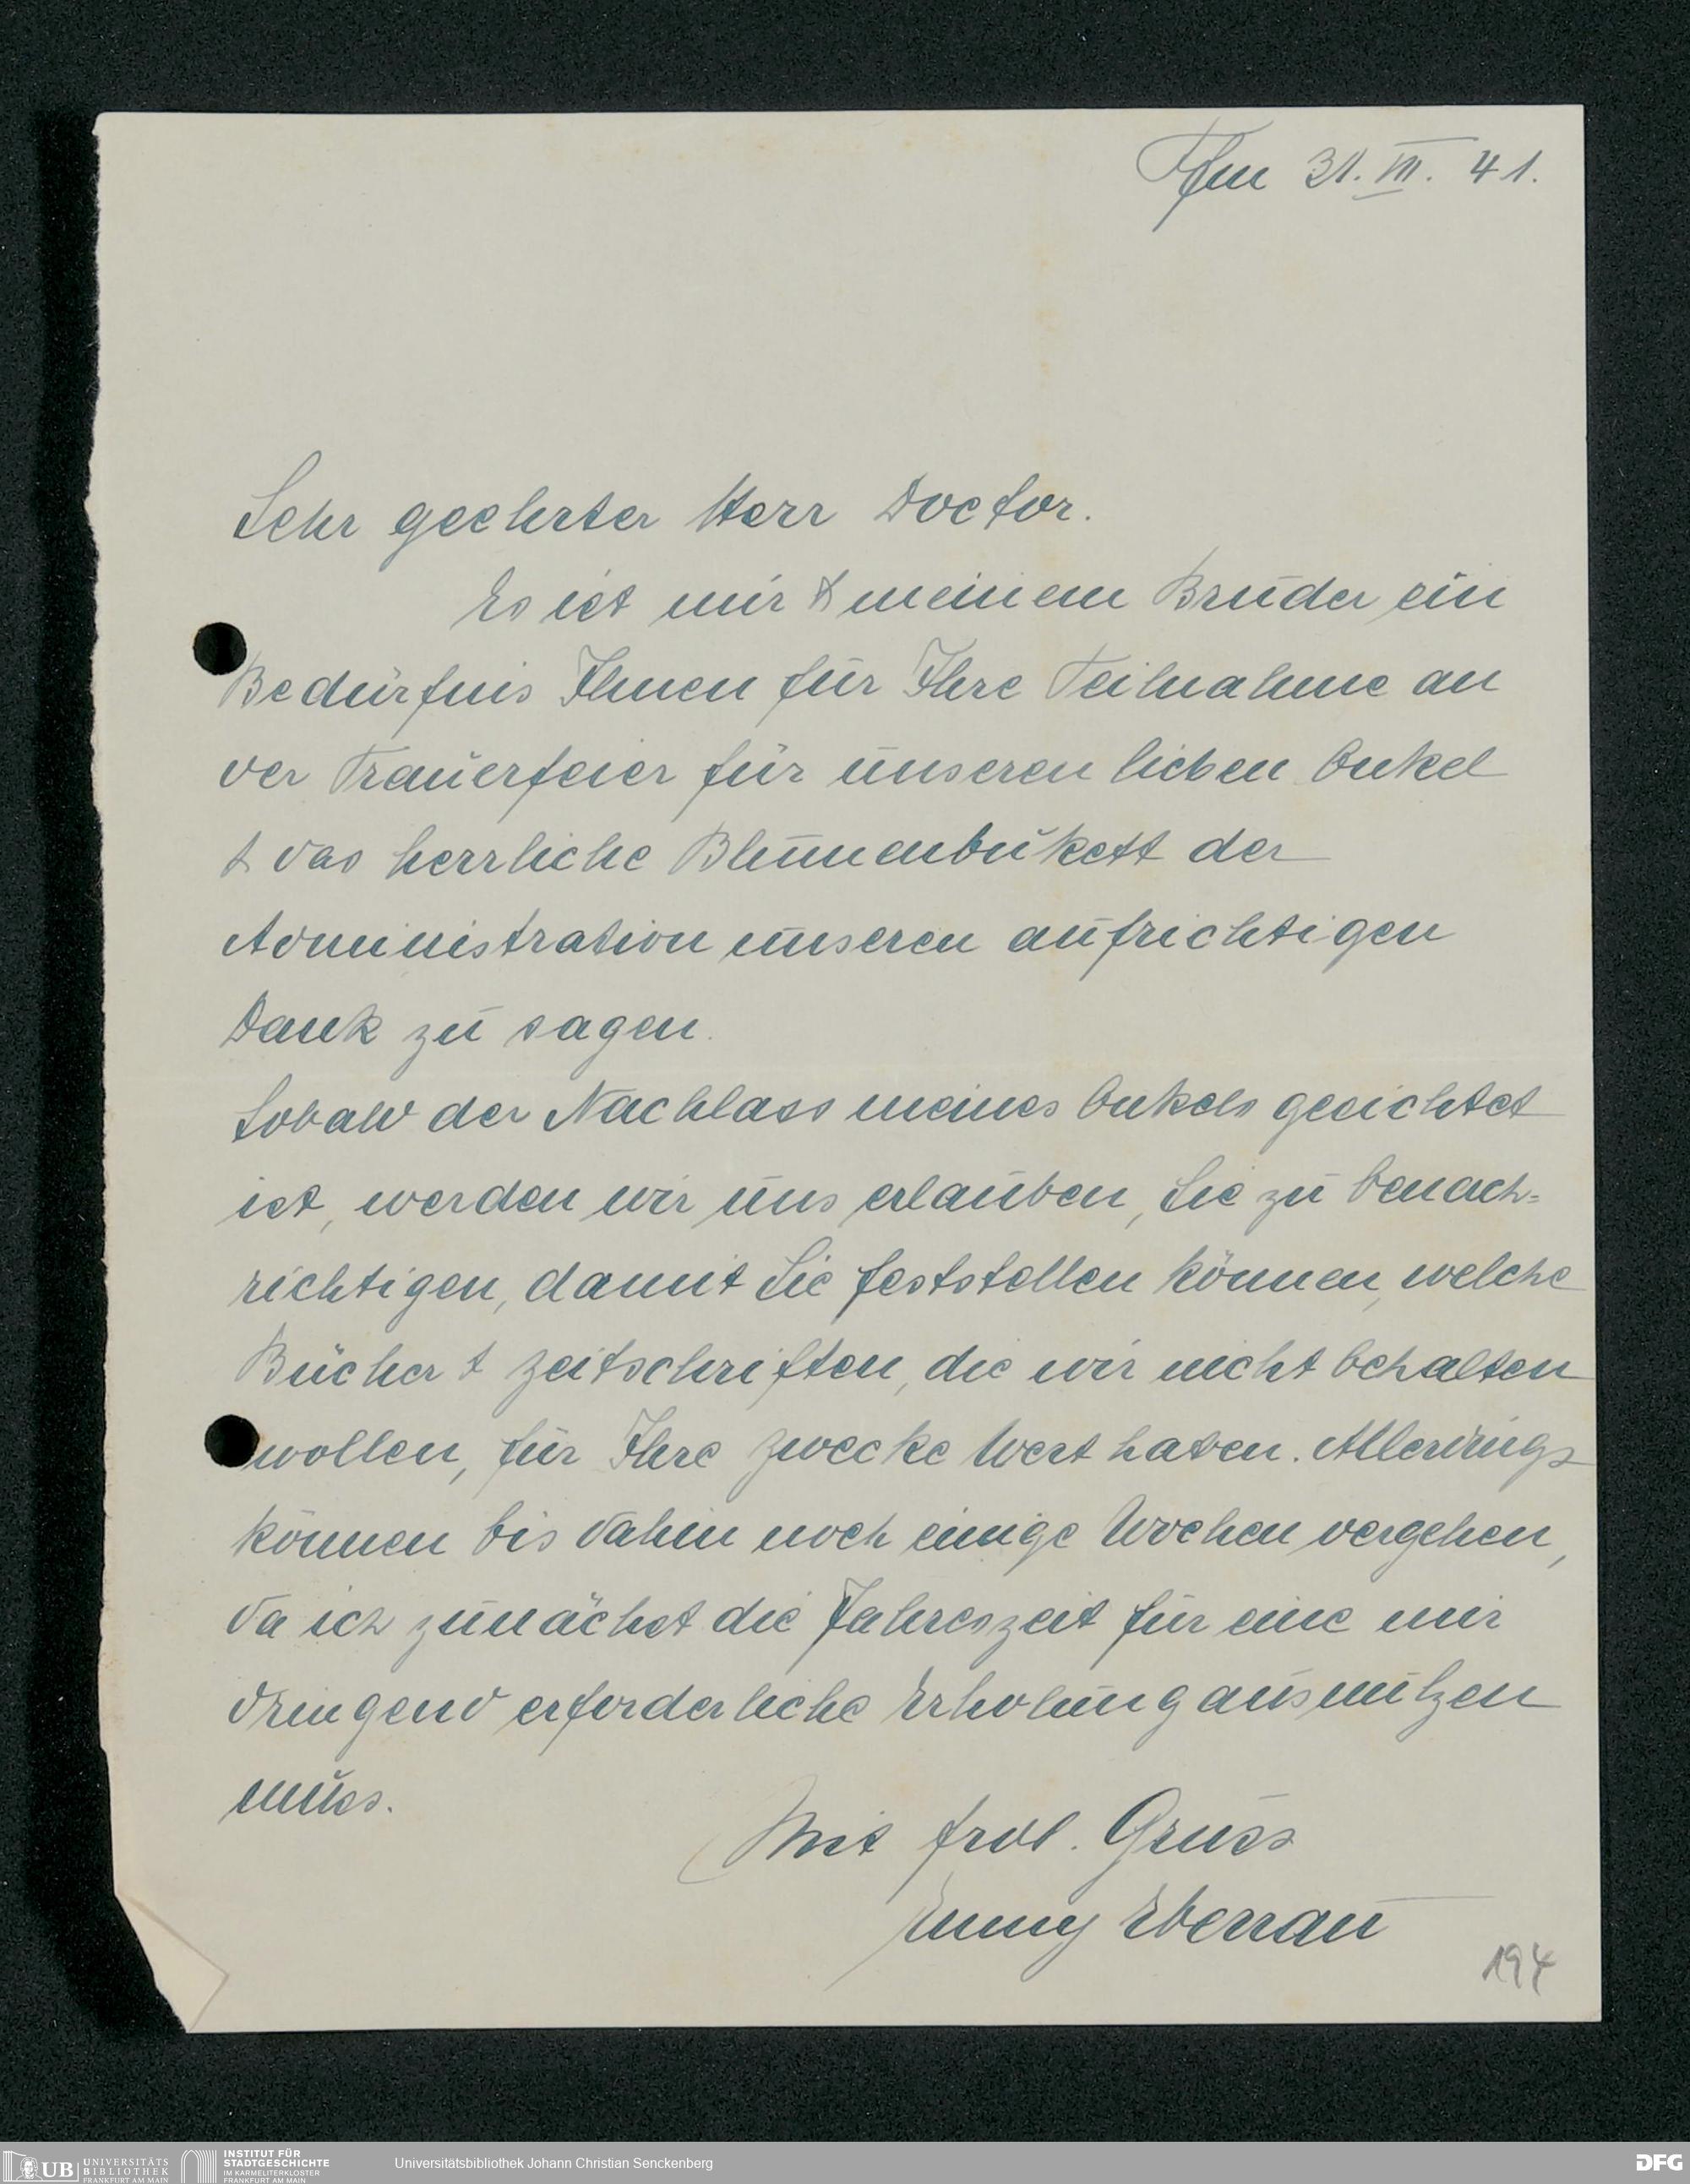 Ffm 31. VII. 41.
Sehr geehrter Herr Doctor.
Es ist mir & meinem Bruder ein
Bedürfnis Ihnen für Ihre Teilnahme an
der Trauerfeier für unseren lieben Onkel
& das herrliche Blumenbukett der
Administration unseren aufrichtigen
Dank zu sagen.
Sobald der Nachlass meines Onkels gesichtet
ist, werden wir uns erlauben, Sie zu benach=
richtigen, damit Sie feststellen können, welche
Bücher & Zeitschriften, die wir nicht behalten
wollen, für Ihre Zwecke Wert haben. Allerdings
können bis dahin noch einige Wochen vergehen,
da ich zunächst die Jahreszeit für eine mir
dringend erforderliche Erholung ausnützen
muss.
Mit frdl. Gruss
Emmy Eberrau
194
UB UNIVERSITÄTS
BIBLIOTHEK
FRANKFURT AM MAIN
INSTITUT FÜR
STADTGESCHICHTE
IM KARMELITERKLOSTER
FRANKFURT AM MAIN
Universitätsbibliothek Johann Christian Senckenberg
DFG